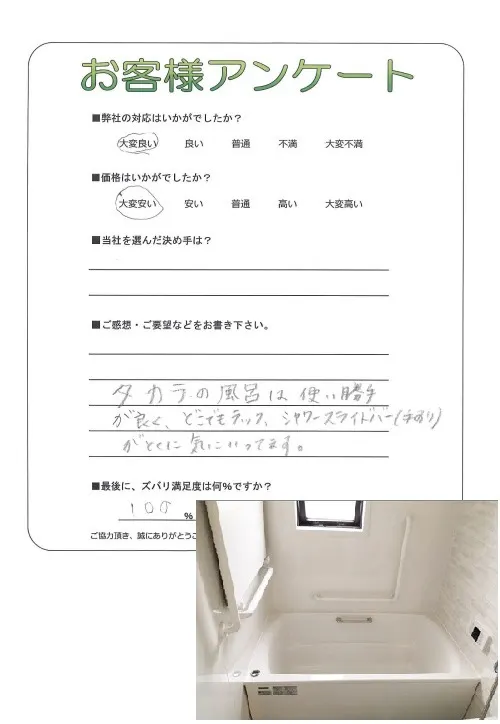 お客様アンケート
■弊社の対応はいかがでしたか？
大変良い 良い 普通 不満 大変不満
■価格はいかがでしたか？
大変安い 安い 普通 高い 大変高い
■当社を選んだ決め手は？
■ご感想・ご要望などをお書き下さい。
タカラの風呂は使い勝手
が良く、どこでもラック、シャワースライドバー(手すり)
がとくに気にいってます。
■最後に、ズバリ満足度は何％ですか？
100 %
ご協力頂き、誠にありがとうご